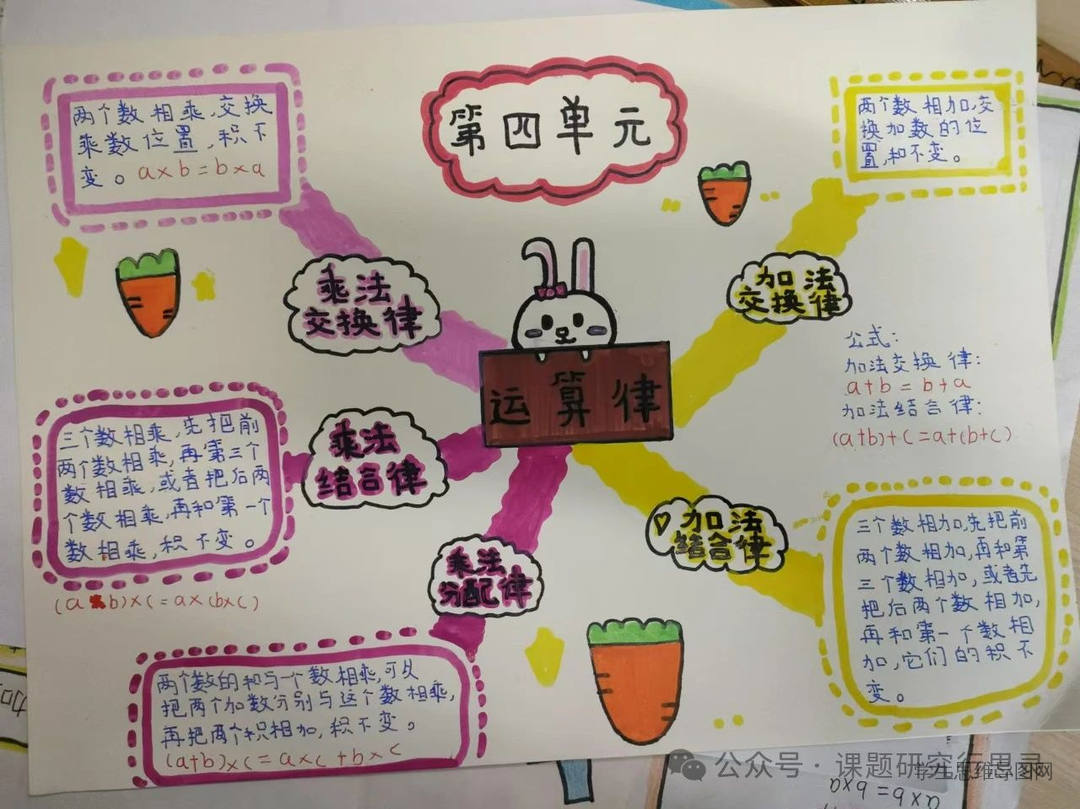 第四单元
运算律
两个数相乘,交换
乘数位置,积不
变。a×b=b×a
乘法
交换律
三个数相乘,先把前
两个数相乘,再第三个
数相乘,或者把后两
个数相乘,再和第一个
数相乘,积不变。
(a×b)×c=a×(b×c)
乘法
结合律
乘法
分配律
两个数的和与一个数相乘,可以
把两个加数分别与这个数相乘,
再把两个积相加,积不变。
(a+b)×c=a×c+b×c
两个数相加,交
换加数的位
置,和不变。
加法
交换律
公式:
加法交换律:
a+b=b+a
加法结合律:
(a+b)+c=a+(b+c)
加法
结合律
三个数相加,先把前
两个数相加,再和第
三个数相加,或者先
把后两个数相加,
再和第一个数相
加,它们的积不
变。
公众号·课题研究行思录
学生思维导图网
a×b=b×a